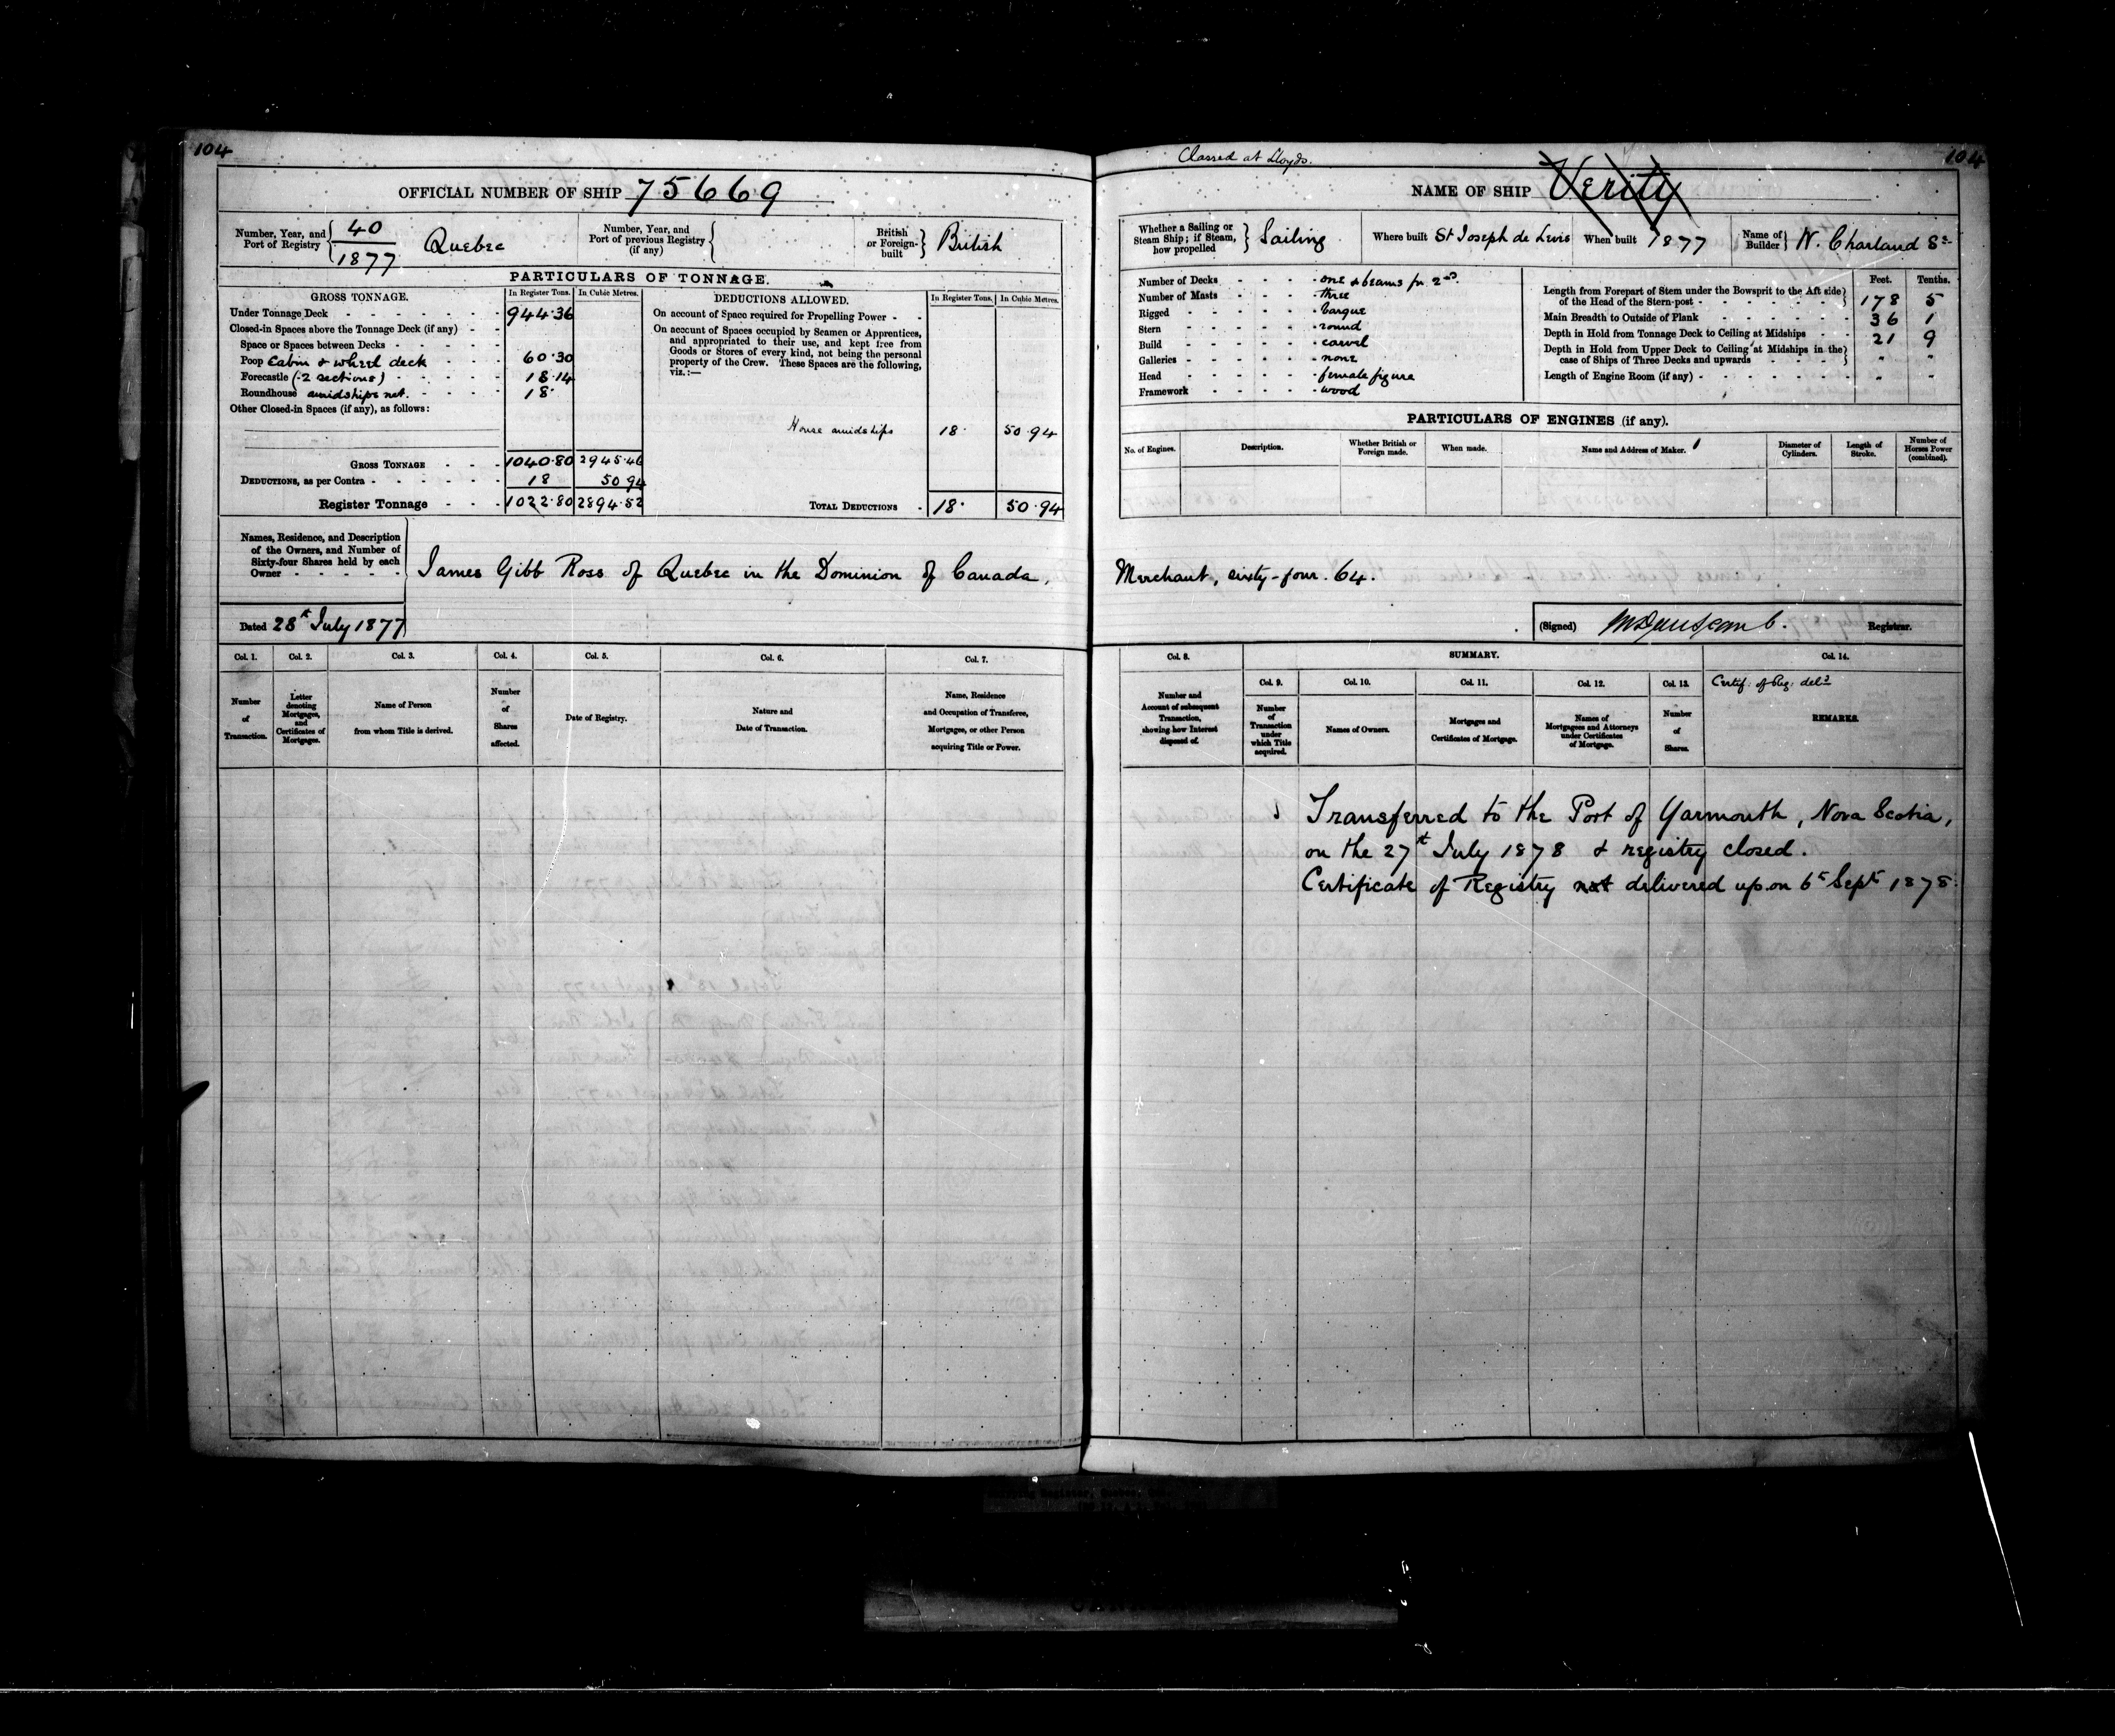 104
OFFICIAL NUMBER OF SHIP 75669
Number, Year, and Port of Registry { 40 / 1877 Quebec
Number, Year, and Port of previous Registry (if any) {
British or Foreign-built } British
PARTICULARS OF TONNAGE.
GROSS TONNAGE. In Register Tons. In Cubic Metres.
Under Tonnage Deck - 944.36
Closed-in Spaces above the Tonnage Deck (if any) - -
Space or Spaces between Decks -
Poop Cabin & wheel deck - 60.30
Forecastle (2 sections) - 18.14
Roundhouse amidships net. - 18.
Other Closed-in Spaces (if any), as follows:
GROSS TONNAGE - 1040.80 2945.46
DEDUCTIONS, as per Contra - 18 50 94
Register Tonnage - 1022.80 2894.52
DEDUCTIONS ALLOWED. In Register Tons. In Cubic Metres.
On account of Space required for Propelling Power - -
On account of Spaces occupied by Seamen or Apprentices,
and appropriated to their use, and kept free from
Goods or Stores of every kind, not being the personal
property of the Crew. These Spaces are the following,
viz.:—
House amidships 18. 50.94
TOTAL DEDUCTIONS - 18. 50.94
Names, Residence, and Description
of the Owners, and Number of
Sixty-four Shares held by each
Owner - - - - -
James Gibb Ross of Quebec in the Dominion of Canada,
Dated 28th July 1877
Col. 1. Col. 2. Col. 3. Col. 4. Col. 5. Col. 6. Col. 7.
Number of Transaction.
Letter denoting Mortgages, and Certificates of Mortgages.
Name of Person from whom Title is derived.
Number of Shares affected.
Date of Registry.
Nature and Date of Transaction.
Name, Residence and Occupation of Transferee, Mortgagee, or other Person acquiring Title or Power.
Classed at Lloyds.
104
NAME OF SHIP Verity
Whether a Sailing or Steam Ship; if Steam, how propelled } Sailing
Where built St Joseph de Levis
When built 1877
Name of Builder } W. Charland Sr
Number of Decks - one & beams for 2nd.
Number of Masts - three
Rigged - barque
Stern - round
Build - carvel
Galleries - none
Head - female figure
Framework - wood
Feet. Tenths.
Length from Forepart of Stem under the Bowsprit to the Aft side
of the Head of the Stern-post - 178 5
Main Breadth to Outside of Plank 36 1
Depth in Hold from Tonnage Deck to Ceiling at Midships - - 21 9
Depth in Hold from Upper Deck to Ceiling at Midships in the
case of Ships of Three Decks and upwards - " "
Length of Engine Room (if any) - " "
PARTICULARS OF ENGINES (if any).
No. of Engines. Description. Whether British or Foreign made. When made. Name and Address of Maker. Diameter of Cylinders. Length of Stroke. Number of Horses Power (combined).
Merchant, sixty-four. 64.
(Signed) Registrar.
Col. 8. SUMMARY. Col. 14.
Col. 9. Col. 10. Col. 11. Col. 12. Col. 13.
Number and Account of subsequent Transaction, showing how Interest disposed of.
Number of Transaction under which Title acquired.
Names of Owners.
Mortgages and Certificates of Mortgage.
Names of Mortgagees and Attorneys under Certificates of Mortgage.
Number of Shares.
Certif: of Reg: deld
REMARKS.
Transferred to the Port of Yarmouth, Nova Scotia,
on the 27th July 1878 & registry closed.
Certificate of Registry not delivered up on 6th Sept 1878